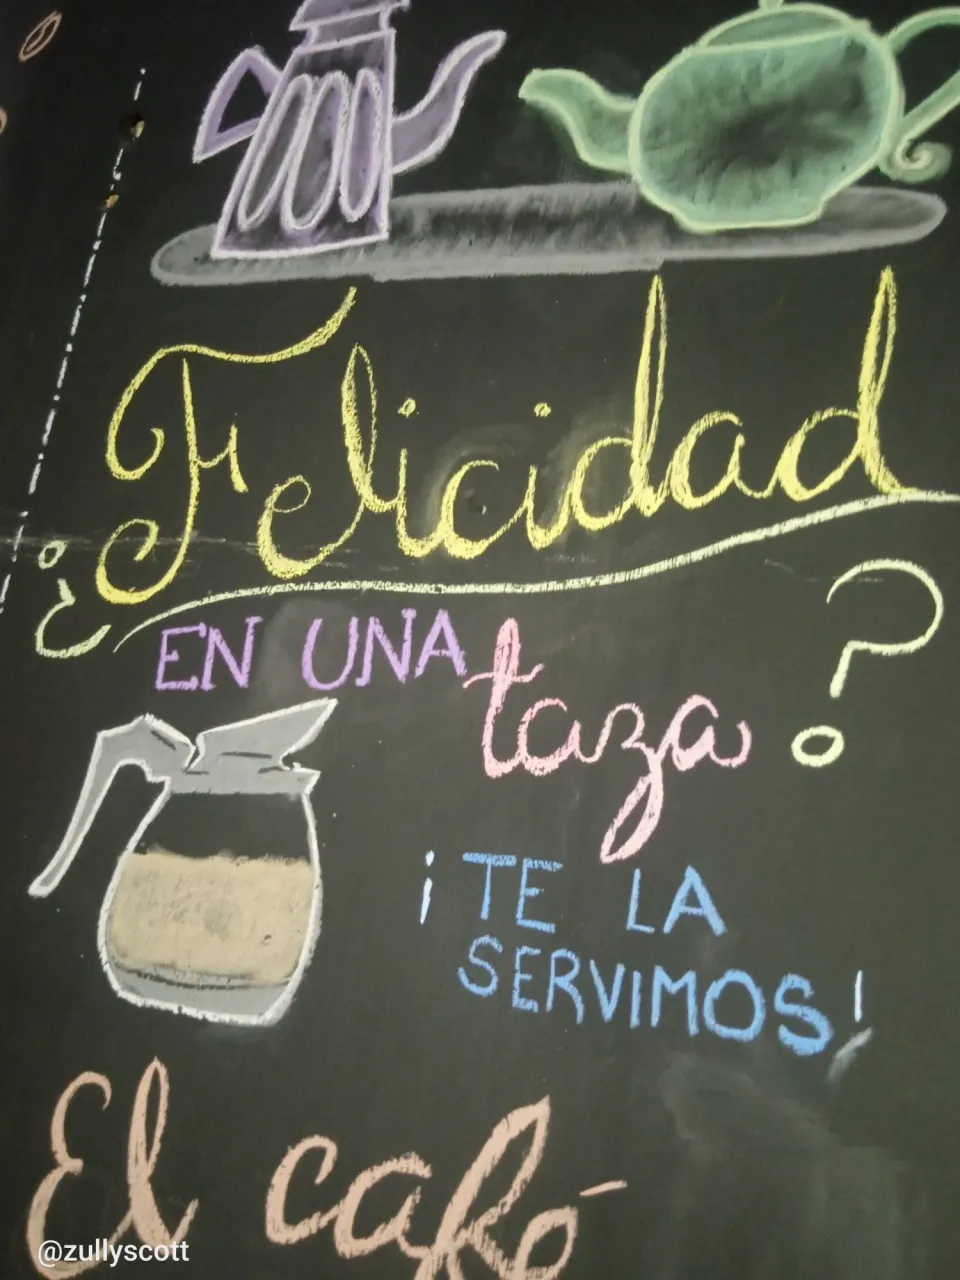 ¿Felicidad
EN UNA taza?
¡TE LA
SERVIMOS!
El café
@zullyscott